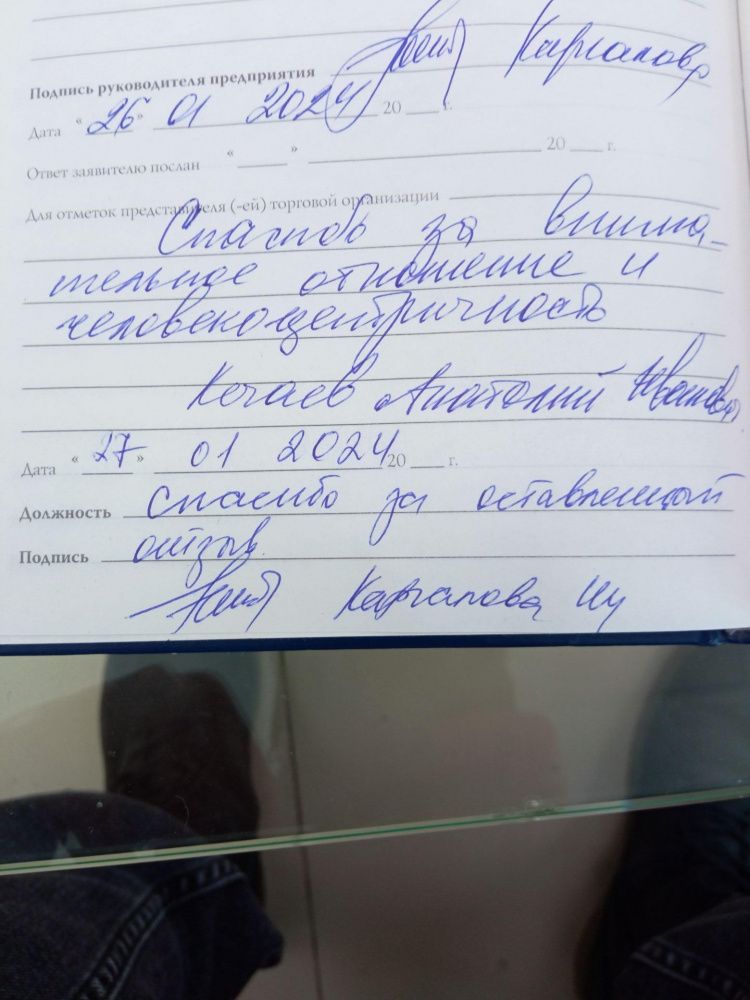 Подпись руководителя предприятия Каргалова
Дата "26" 01 2024 20 г.
Ответ заявителю послан " " 20 г.
Для отметок представителя (-ей) торговой организации
Спасибо за внима-
тельное отношение и
человекоцентричность
Кечаев Анатолий Иванович
Дата "27" 01 2024 20 г.
Должность спасибо за оставленный
Подпись отзыв.
Каргалова